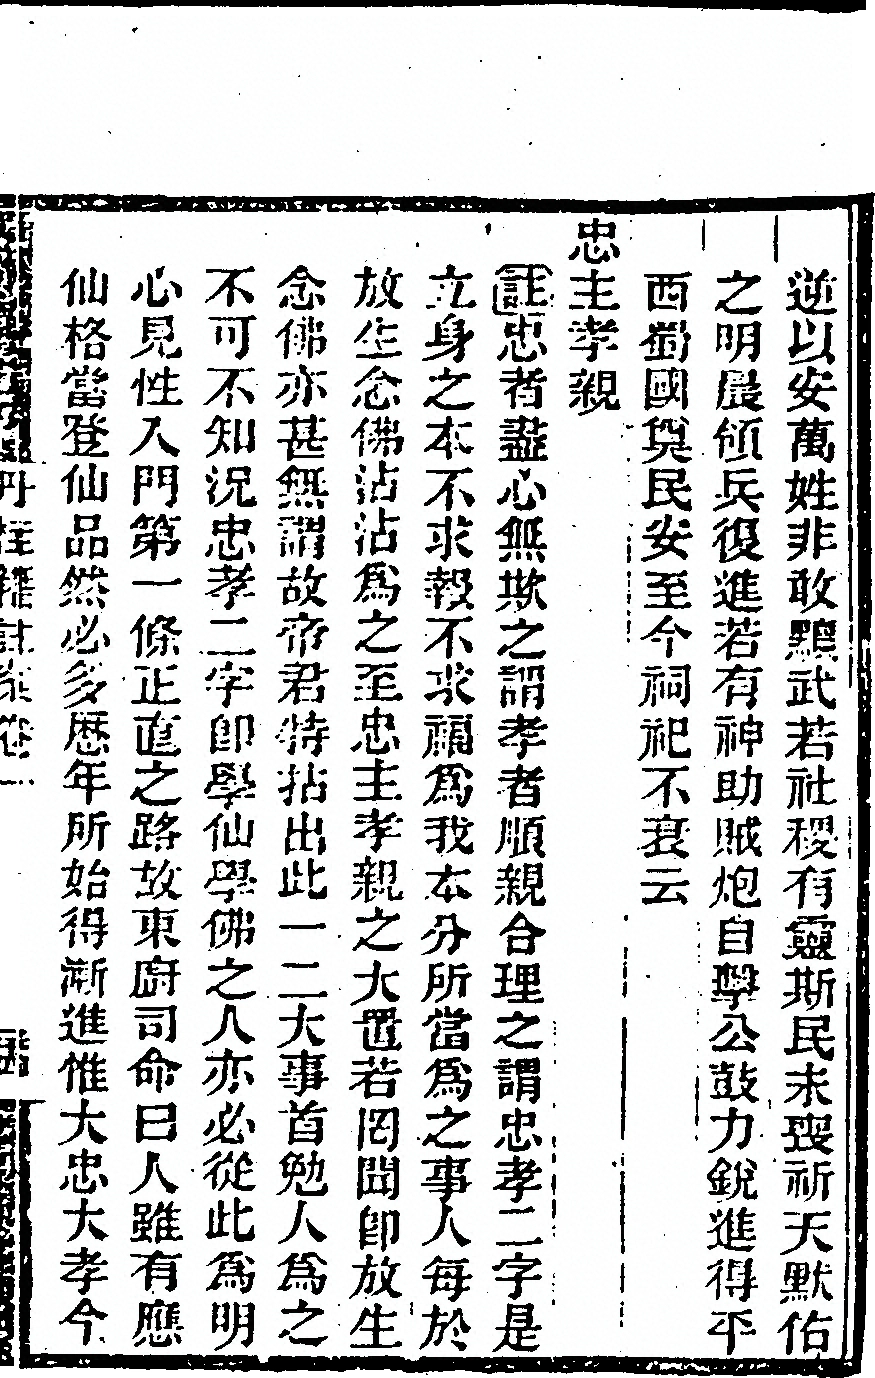 逆以安萬姓非敢黷武若社稷有靈斯民未喪祈天默佑
之明晨傾兵復進若有神助賊炮自擊公鼓力銳進得平
西蜀國奠民安至今祠祀不衰云
忠主孝親
註忠者盡心無欺之謂孝者順親合理之謂忠孝二字是
立身之本不求報不求福爲我本分所當爲之事人每於
放生念佛沾沾爲之至忠主孝親之大置若罔聞卽放生
念佛亦甚無謂故帝君特拈出此一二大事首勉人爲之
不可不知況忠孝二字卽學仙學佛之人亦必從此爲明
心見性入門第一條正直之路故東廚司命曰人雖有應
仙格當登仙品然必多歷年所始得漸進惟大忠大孝今
丹桂籍註案卷一